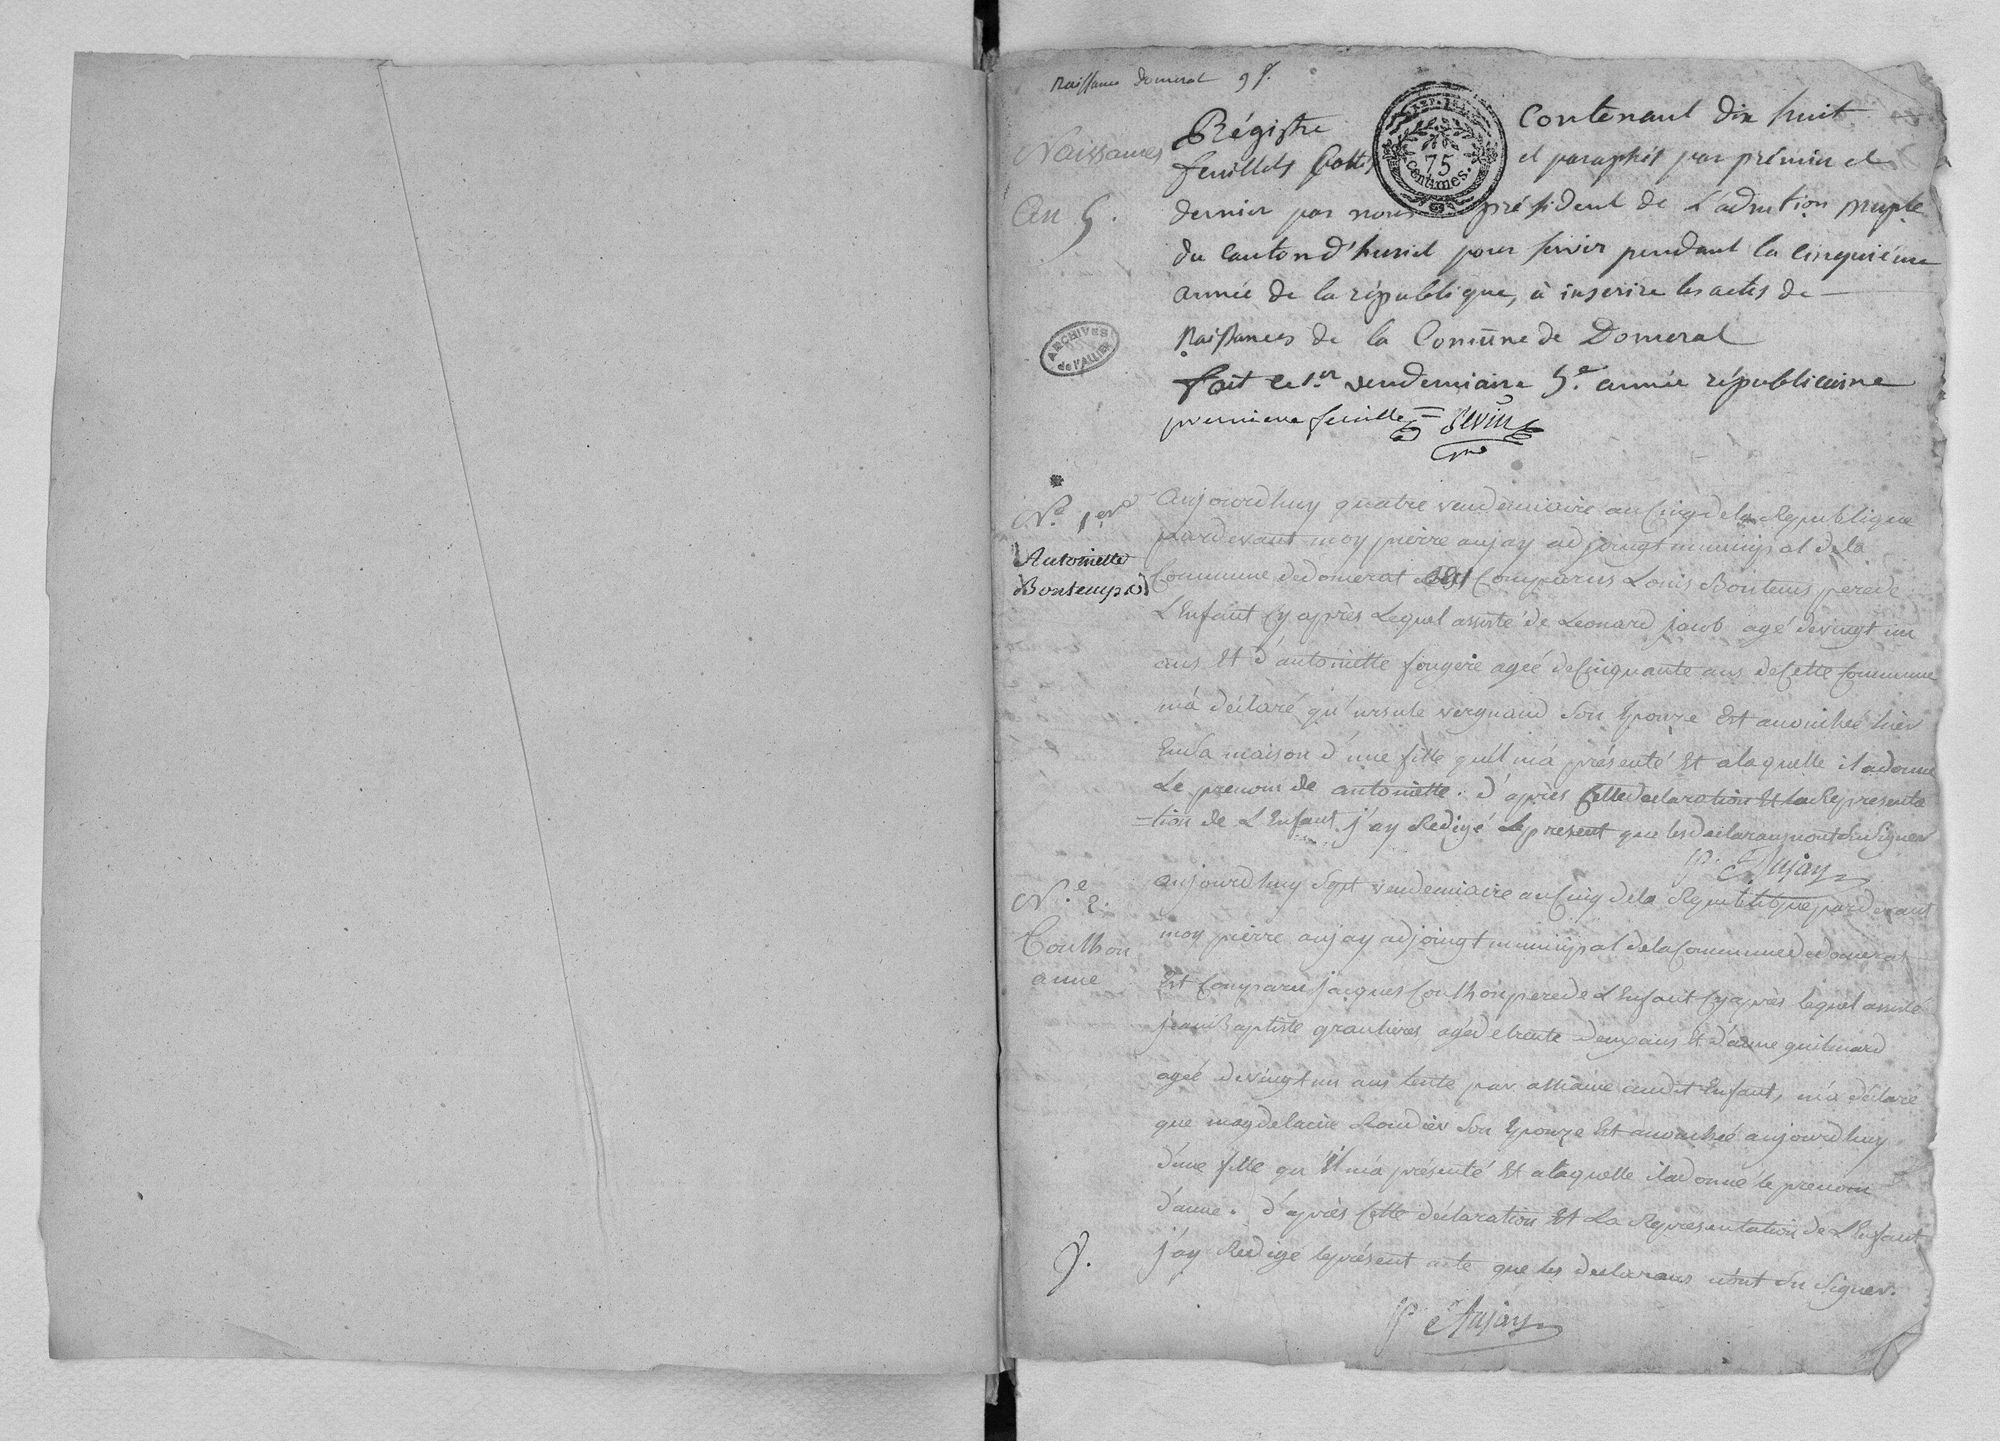 Naissance Domerat 9 f.
Naissances
An 5.
Régistre contenant dix huit
feuillets Cottés et paraphés par prémier et
dernier par nous président de L'adm̃tion muple
du canton d'huriel pour servir pendant la cinquiéme
année de la république, à inserire les actes de
Naissances de la Comũne de Domerat
fait le 1.er vendemiaire 5.e année républicaine
premiere feuille = Sevin
REP. FRA.
75
centimes.
ARCHIVES
de l'ALLIER
N.o 1er
Antoinette
Bontemps
aujourdhuy quatre vendemiaire an Cinq de la Republique
pardevant moy pierre aujay adjoingt municipal de la
Commune de domerat est Comparus Louis Bontems pere de
L'Enfant Cy après Lequel assisté de Leonard jacob agé de vingt un
ans Et d'antoinette fougere ageé de Cinquante ans de Cette Commune
m'a déclaré qu'ursule vergnaud Son Epouze Est accouchée hièr
En Sa maison d'une fille quil m'a présenté Et alaquelle il a donné
Le prenom de antoinette. d'après Cette declaration Et la Represente
=tion de L'Enfant j'ay Redigé le present que les declarans nont Su Signer
P. Aujay
N.e 2.
Couthon
anne
aujourdhuy Sept vendemiaire an Cinq de la Republique pardevant
moy pierre aujay adjoingt municipal de la Commune de domerat
Est Comparu jacques Couthon pere de L'Enfant Cy après lequel assisté
jean Baptiste graulieres agé de trente deux ans Et d'anne guilmard
ageé de vingt un ans tente par assiance audit Enfant, m'a déclaré
que magdelaine Roudier Son Epouze Est accouchée aujourdhuy
d'une fille qu'il m'a présenté Et alaquelle il a donné le prenom
d'anne. d'après Cette déclaration Et La Representation de L'Enfant
j'ay Redigé le présent acte que les declarans n'ont Su Signer.
P Aujay